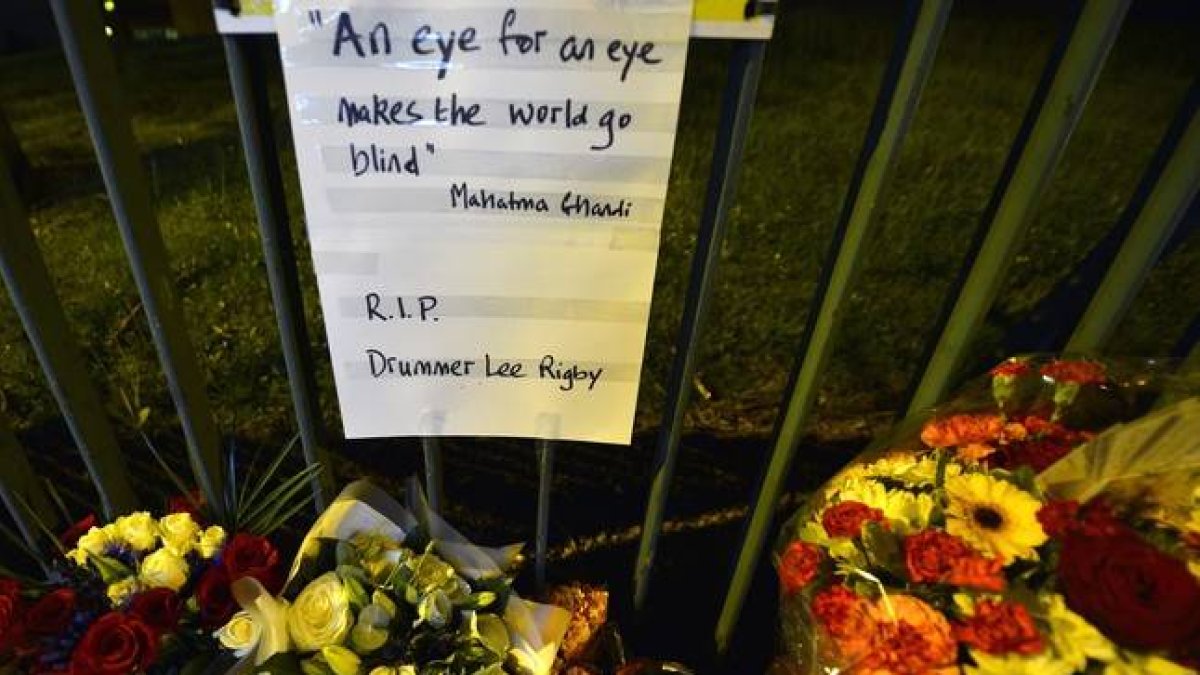 "An eye for an eye
makes the world go
blind"
Mahatma Ghandi
R.I.P.
Drummer Lee Rigby